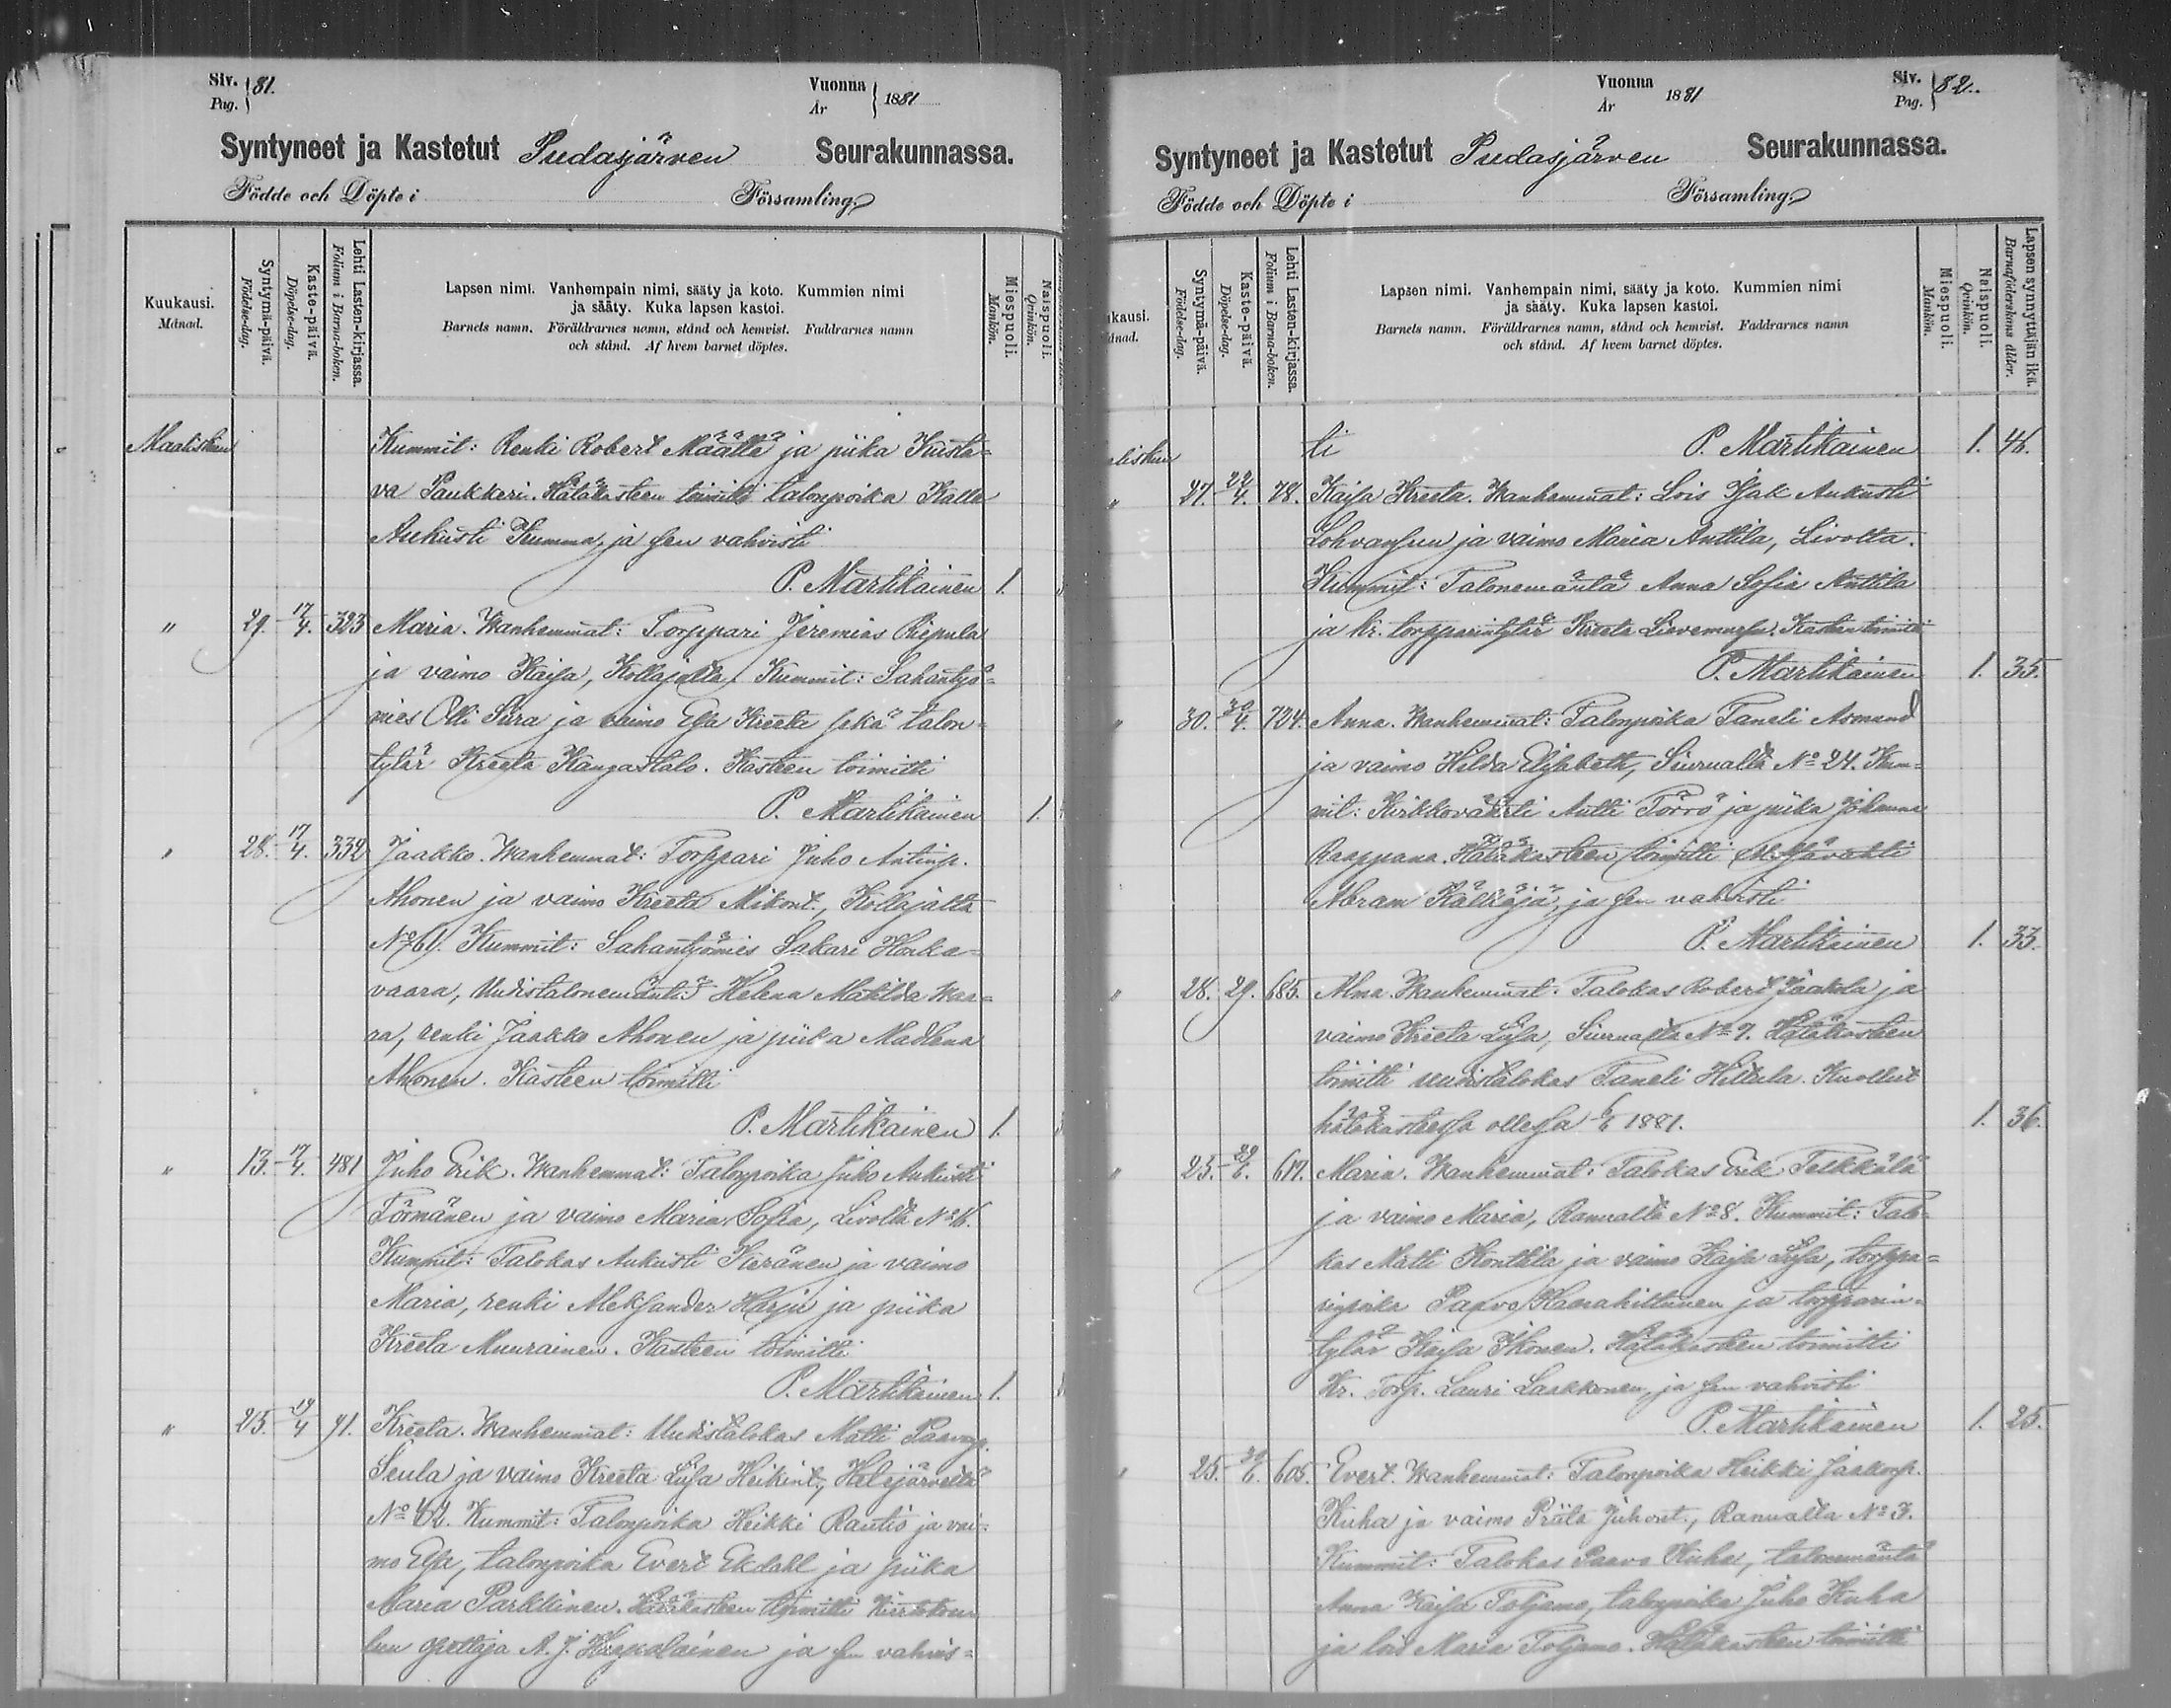 Siv. 81.
Pag.
Vuonna 1881
År
Syntyneet ja Kastetut Pudasjärven Seurakunnassa.
Födde och Döpte i Församling.
Kuukausi.
Månad.
Syntymä-päivä.
Födelse-dag.
Kaste-päivä.
Döpelse-dag.
Lehti Lasten-kirjassa.
Folium i Barna-boken.
Lapsen nimi. Vanhempain nimi, sääty ja koto. Kummien nimi
ja sääty. Kuka lapsen kastoi.
Barnets namn. Föräldrarnes namn, stånd och hemvist. Faddrarnes namn
och stånd. Af hvem barnet döptes.
Miespuoli.
Mankön.
Naispuoli.
Qvinkön.
Maaliskuu Kummit: Renki Robert Määttä ja piika Kusta-
va Paukkeri. Hätäkasteen toimitti talonpoika Kalle
Aukusti Kumma, ja sen vahvisti
P. Martikainen 1.
" 29. 17/4. 323 Maria. Wanhemmat: Torppari Jeremias Riepula
ja vaimo Kaisa, Kollajalla. Kummit: Sahantyö-
mies Olli Sirra ja vaimo Elsa Kreeta sekä talon-
tytär Kreeta Kangastalo. Kasteen toimitti
P. Martikainen 1.
" 28. 17/4. 332 Jaakko. Wanhemmat: Torppari Juho Antinp.
Ahonen ja vaimo Kreeta Mikont., Kollajalta
No 61. Kummit: Sahantyömies Sakari Honka-
vaara, Uudistalonemäntä Helena Matilda Waa-
ra, renki Jaakko Ahonen ja piika Madlena
Ahonen. Kasteen toimitti
P. Martikainen 1.
" 13. 17/4. 481 Juho Erik. Wanhemmat: Talonpoika Juho Aukusti
Törmänen ja vaimo Maria Sofia, Livolta No 16.
Kummit: Talokas Aukusti Keränen ja vaimo
Maria, renki Aleksander Harju ja piika
Kreeta Muurainen. Kasteen toimitti
P. Martikainen 1.
" 25. 19/4 91. Kreeta. Wanhemmat: Uudistalokas Matti Paavonp.
Seula ja vaimo Kreeta Liisa Heikint.,
No 42. Kummit: Talonpoika Heikki Rautio ja vai-
mo Elsa, talonpoika Evert Ekdahl ja piika
Maria Parkkinen. Hätäkasteen toimitti Kiertokou-
lun opettaja A. J. Happolainen ja sen vahvis-
Vuonna 1881
År
Siv. 82.
Pag.
Syntyneet ja Kastetut Pudasjärven Seurakunnassa.
Födde och Döpte i Församling.
kausi.
ånad.
Syntymä-päivä.
Födelse-dag.
Kaste-päivä.
Döpelse-dag.
Lehti Lasten-kirjassa.
Folium i Barna-boken.
Lapsen nimi. Vanhempain nimi, sääty ja koto. Kummien nimi
ja sääty. Kuka lapsen kastoi.
Barnets namn. Föräldrarnes namn, stånd och hemvist. Faddrarnes namn
och stånd. Af hvem barnet döptes.
Miespuoli.
Mankön.
Naispuoli.
Qvinkön.
Lapsen synnyttäjän ikä.
Barnaföderskans ålder.
liskuu ti P. Martikainen 1. 46.
" 27. 4. 78. Kaisa Kreeta. Wanhemmat: Lois Isak Aukusti
Lohvansuu ja vaimo Maria Anttila, Livolta.
Kummit: Talonemäntä Anna Sofia Anttila
ja kr. torpparintytär Kreeta Kasteen toimitti
P. Martikainen 1. 35.
" 30. 30/4. 724. Anna. Wanhemmat: Talonpoika Taneli Asmund
ja vaimo Hilda Elisabeth, Siurualla No 24. Kum-
mit: Kirkkovahti Antti Törrö ja piika Johanna
Raappana. Hätäkasteen toimitti
Abram Kälkäjä, ja sen vahvisti
P. Martikainen 1. 33.
" 28. 29. 685. Alma. Wanhemmat: Talokas Robert Jaakola ja
vaimo Kreeta Liisa, Siurualta No 7. Hätäkasteen
toimitti uudistalokas Taneli Hiltula. Kuollut
hätäkasteessa ollessa 1881. 1. 36.
" 23. 29/6. 617. Maria. Wanhemmat: Talokas Erik Telkkälä
ja vaimo Maria, Ranualta No 8. Kummit: Talo-
kas Matti Konttila ja vaimo Kaisa Liisa, torppa-
rinpoika Paavo Haarahiltunen ja torpparin-
tytär Kaisa Ikonen. Hätäkasteen toimitti
Kr. Torp. Lauri Laakkonen, ja sen vahvisti
P. Martikainen 1. 25.
" 25. 6. 605. Evert. Wanhemmat: Talonpoika Heikki Jaakonp.
Kuha ja vaimo Priita Juhont., Ranualta No 3.
Kummit: Talokas Paavo Kuha, talonemäntä
Anna Kaisa Toljamo, talonpoika Juho Kuha
ja lois Maria Toljamo. Hätäkasteen toimitti